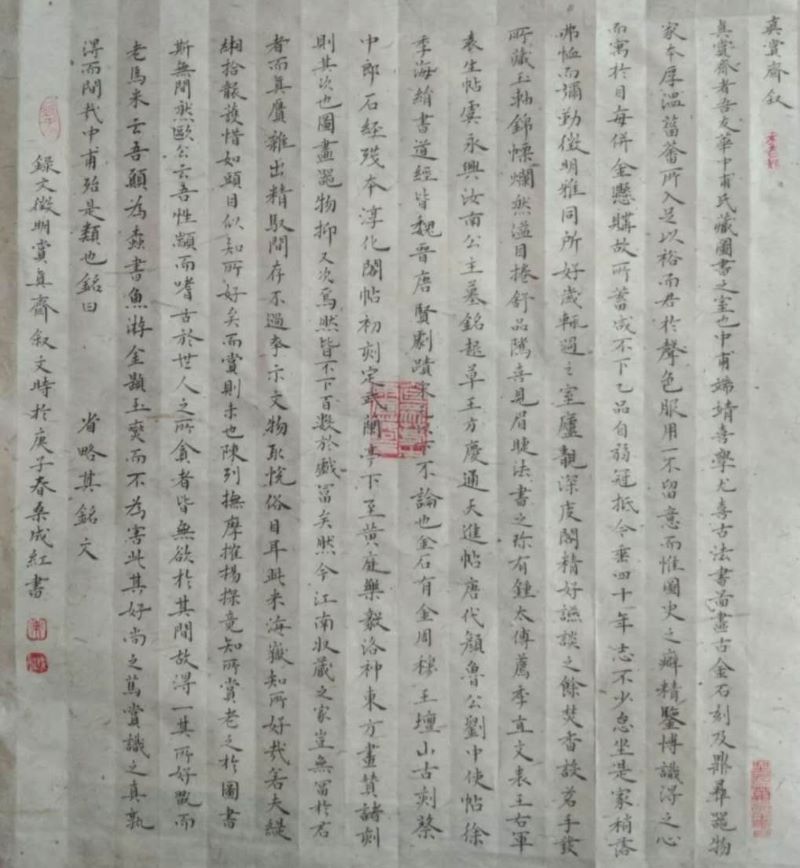 真賞齋叙
真賞齋者吾友華中甫氏藏圖書之室也中甫端靖喜學尤喜古法書啚畫古金石刻及鼎彝器物
家本厚溫菑畬所入足以裕而君於聲色服用一不留意而惟圖史之癖精鑒博識得之心
而寓於目每併金懸購故所蓄咸不下乙品自弱冠抵今垂四十年志不少怠坐是家稍落
弗恤而彌勤徵明雅同所好歲輒過之室廬靚深庋閣精好讌談之餘焚香設茗手發
所藏玉軸錦幖爛然溢目捲舒品隲喜見眉睫法書之珍有鍾太傅薦季直文表王右軍
袁生帖虞永興汝南公主墓銘起草王方慶通天進帖唐代顏魯公劉中使帖徐
季海繪書道經皆魏晉唐賢劇蹟宋元以下不論也金石有金周穆王壇山古刻蔡
中郎石經殘本淳化閣帖初刻定武蘭亭下至黃庭樂毅洛神東方畫贊諸刻
則其次也圖畫器物抑又次焉然皆不下百數於戲富矣然今江南收藏之家豈無富於君
者而真贗雜出精駁間存不過奉示文物取悅俗目耳此米海嶽知所好哉若夫緹
緗拾襲護惜如頭目似知所好矣而賞則未也陳列撫摩摧揚探竟知所賞老之於圖書
斯無間然歐公云吾性顓而嗜古於世人之所貪者皆無欲於其間故得一其所好翫而
老焉米云吾願為蠹書魚游金題玉躞而不為害此其好尚之篤賞識之真孰
得而間哉中甫殆是類也銘曰 省略其銘文
錄文徵明賞真齋叙文時於庚子春桑成紅書